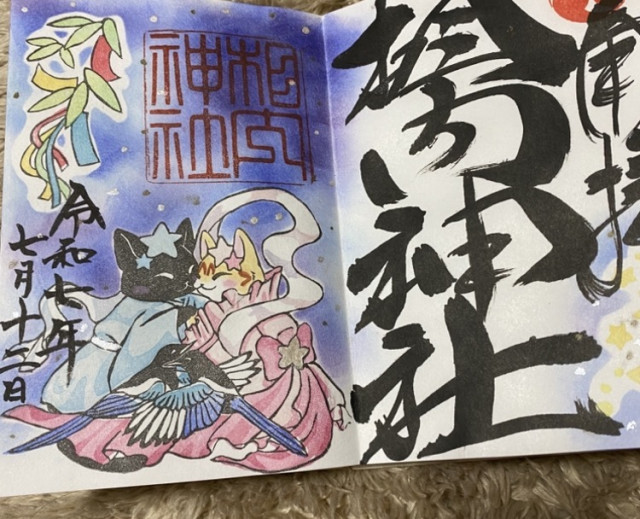 奉拝
相内神社
相内
神社
令和七年
七月十二日